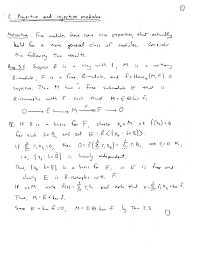 3. Projective and injective modules
Motivation: Free modules have some nice properties that actually
hold for a more general class of modules. Consider
the following two results.
Prop 3.1: Suppose R is a ring with 1, M is a unitary
R-module, F is a free R-module, and f ∈ Hom_R(M, F) is
surjective. Then M has a free submodule E that is
R-isomorphic with F such that M = E ⊕ ker f.
0 → E → M → F → 0
Pf: If B is a basis for F, choose x_b ∈ M st f(x_b) = b
for each b ∈ B, and set E = R⟨x_b : b ∈ B⟩.
If r_i x_{b_i} = 0, then 0 = f( r_i x_{b_i}) = r_i b_i r_i = 0 ∀i,
i.e. {x_b : b ∈ B} is linearly independent.
Thus, {x_b : b ∈ B} is a basis for E, ie E is free and
clearly E is R-isomorphic with F.
If u ∈ M, write f(u) = r_i b_i, and note that
Thus, M = E + ker f.
Since E ∩ ker f = 0, M = E ⊕ ker f by Thm 2.3.